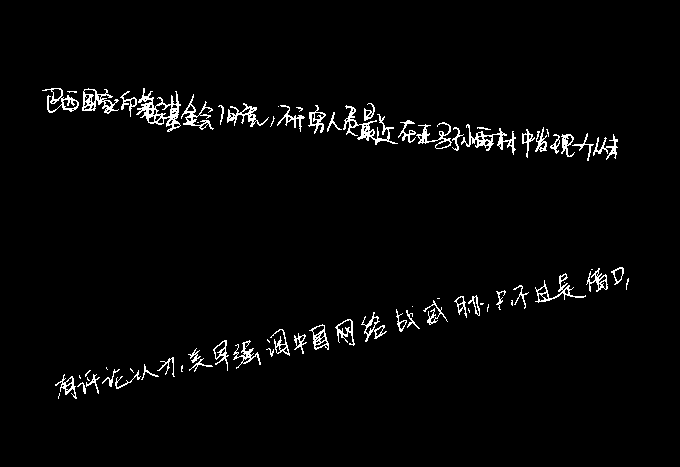 巴西国家印第安基金会19日说,研究人员最近在亚马孙雨林中发现一个从未
有评论认为,美军强调中国网络战威胁,只不过是借口,